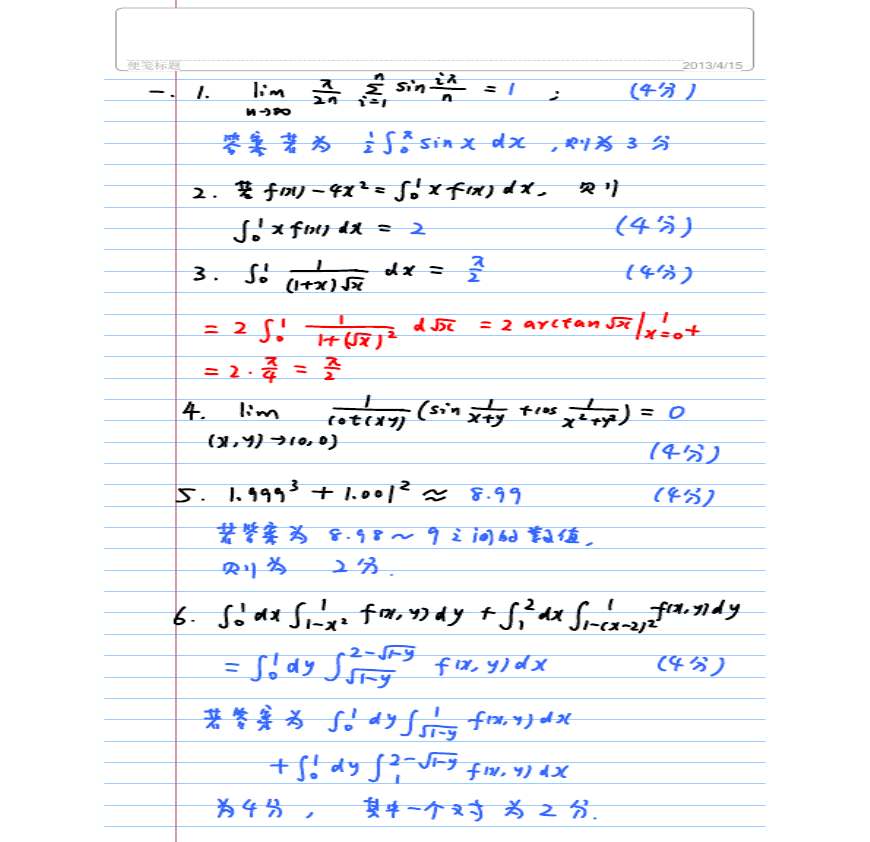 便笺标题 2013/4/15
一. 1. lim_{n→∞} π/2n Σ_{i=1}^{n} sin iπ/n = 1 ; (4分)
答案若为 1/2 ∫_0^π sin x dx , 则为 3 分
2. 若 f(x) - 4x² = ∫_0^1 x f(x) dx, 则
∫_0^1 x f(x) dx = 2 (4分)
3. ∫_0^1 1/((1+x)√x) dx = π/2 (4分)
= 2 ∫_0^1 1/(1+(√x)²) d√x = 2 arctan √x |_{x=0+}^{1}
= 2 · π/4 = π/2
4. lim_{(x,y)→(0,0)} 1/cot(xy) (sin 1/(x+y) + cos 1/(x²+y²)) = 0
(4分)
5. 1.999³ + 1.001² ≈ 8.99 (4分)
若答案为 8.98 ~ 9 之间的数值,
则为 2分.
6. ∫_0^1 dx ∫_{1-x²}^{1} f(x,y) dy + ∫_1^2 dx ∫_{1-(x-2)²}^{1} f(x,y) dy
= ∫_0^1 dy ∫_{√(1-y)}^{2-√(1-y)} f(x,y) dx (4分)
若答案为 ∫_0^1 dy ∫_{√(1-y)}^{1} f(x,y) dx
+ ∫_0^1 dy ∫_1^{2-√(1-y)} f(x,y) dx
为4分, 其中一个对为2分.